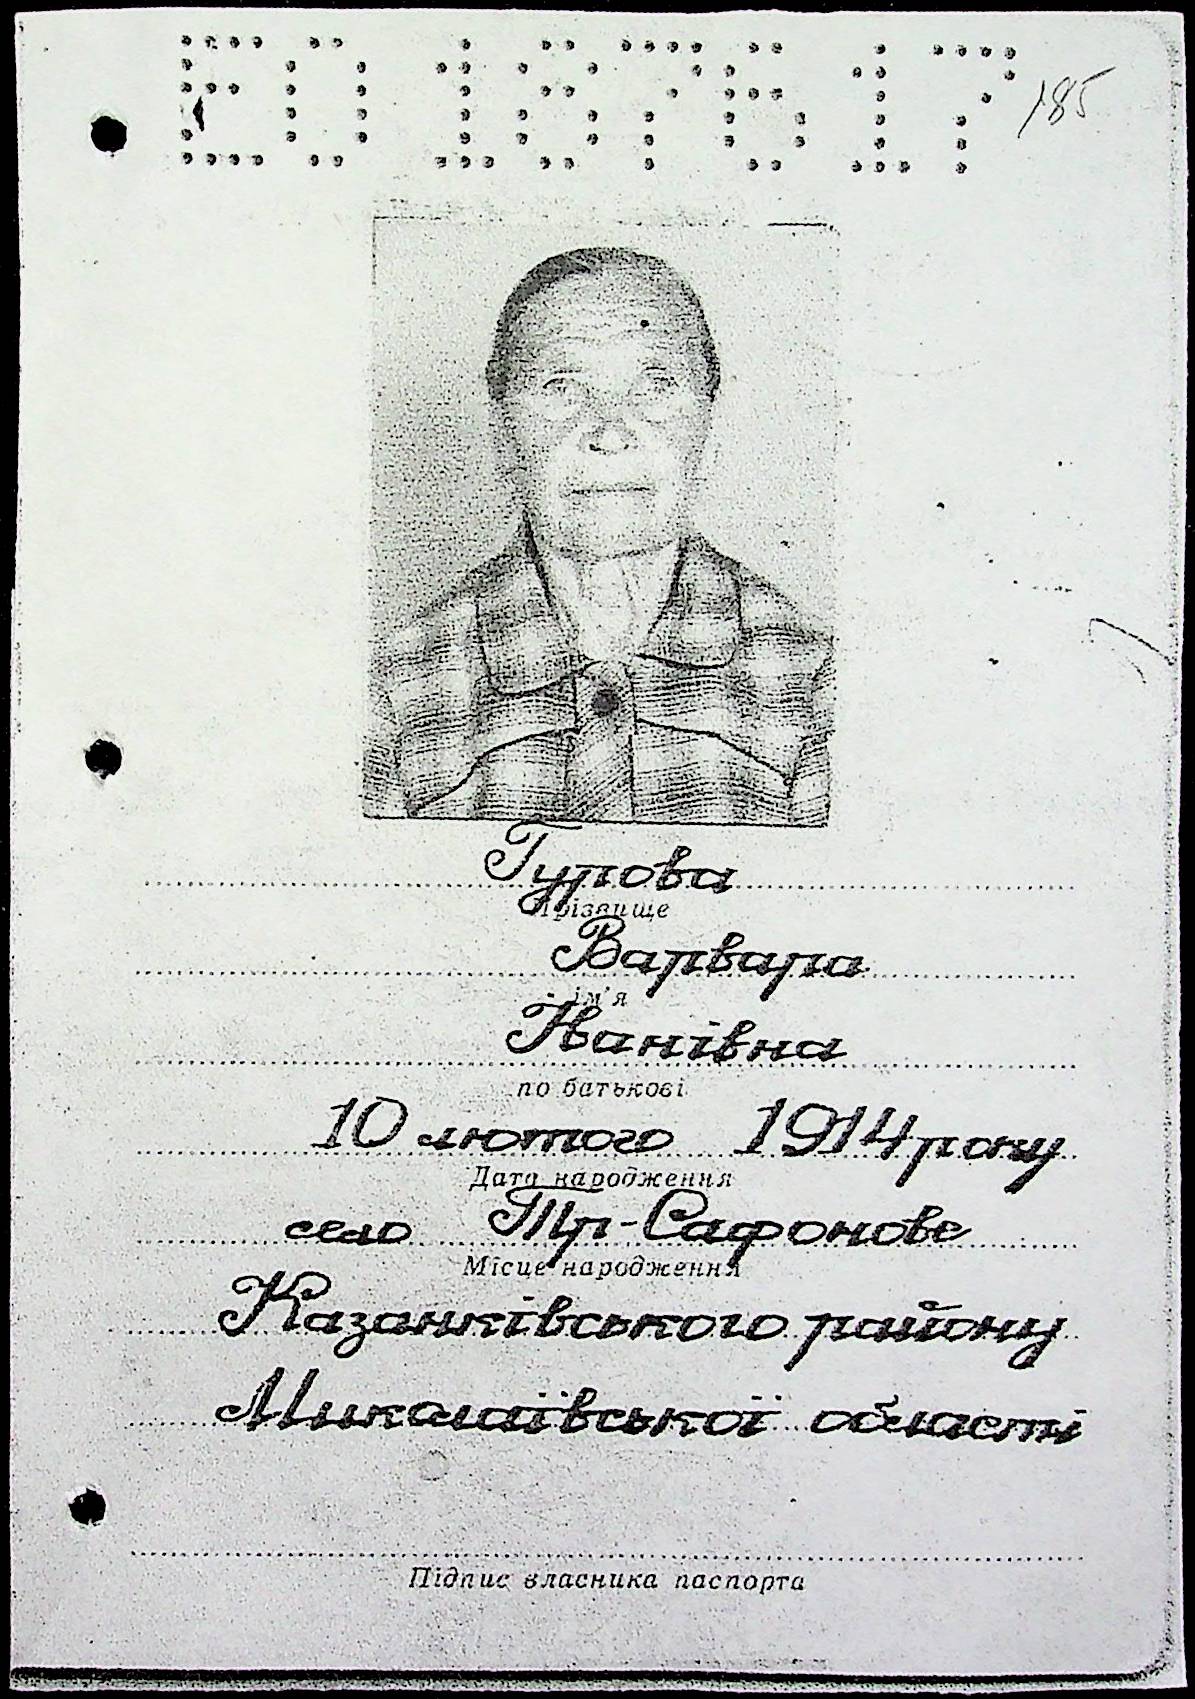 ЕО 187617
185
Гурова
Прізвище
Варвара
ім'я
Іванівна
по батькові
10 лютого 1914 року
Дата народження
село Тр-Сафонове
Місце народження
Казанківського району
Миколаївської області
Підпис власника паспорта